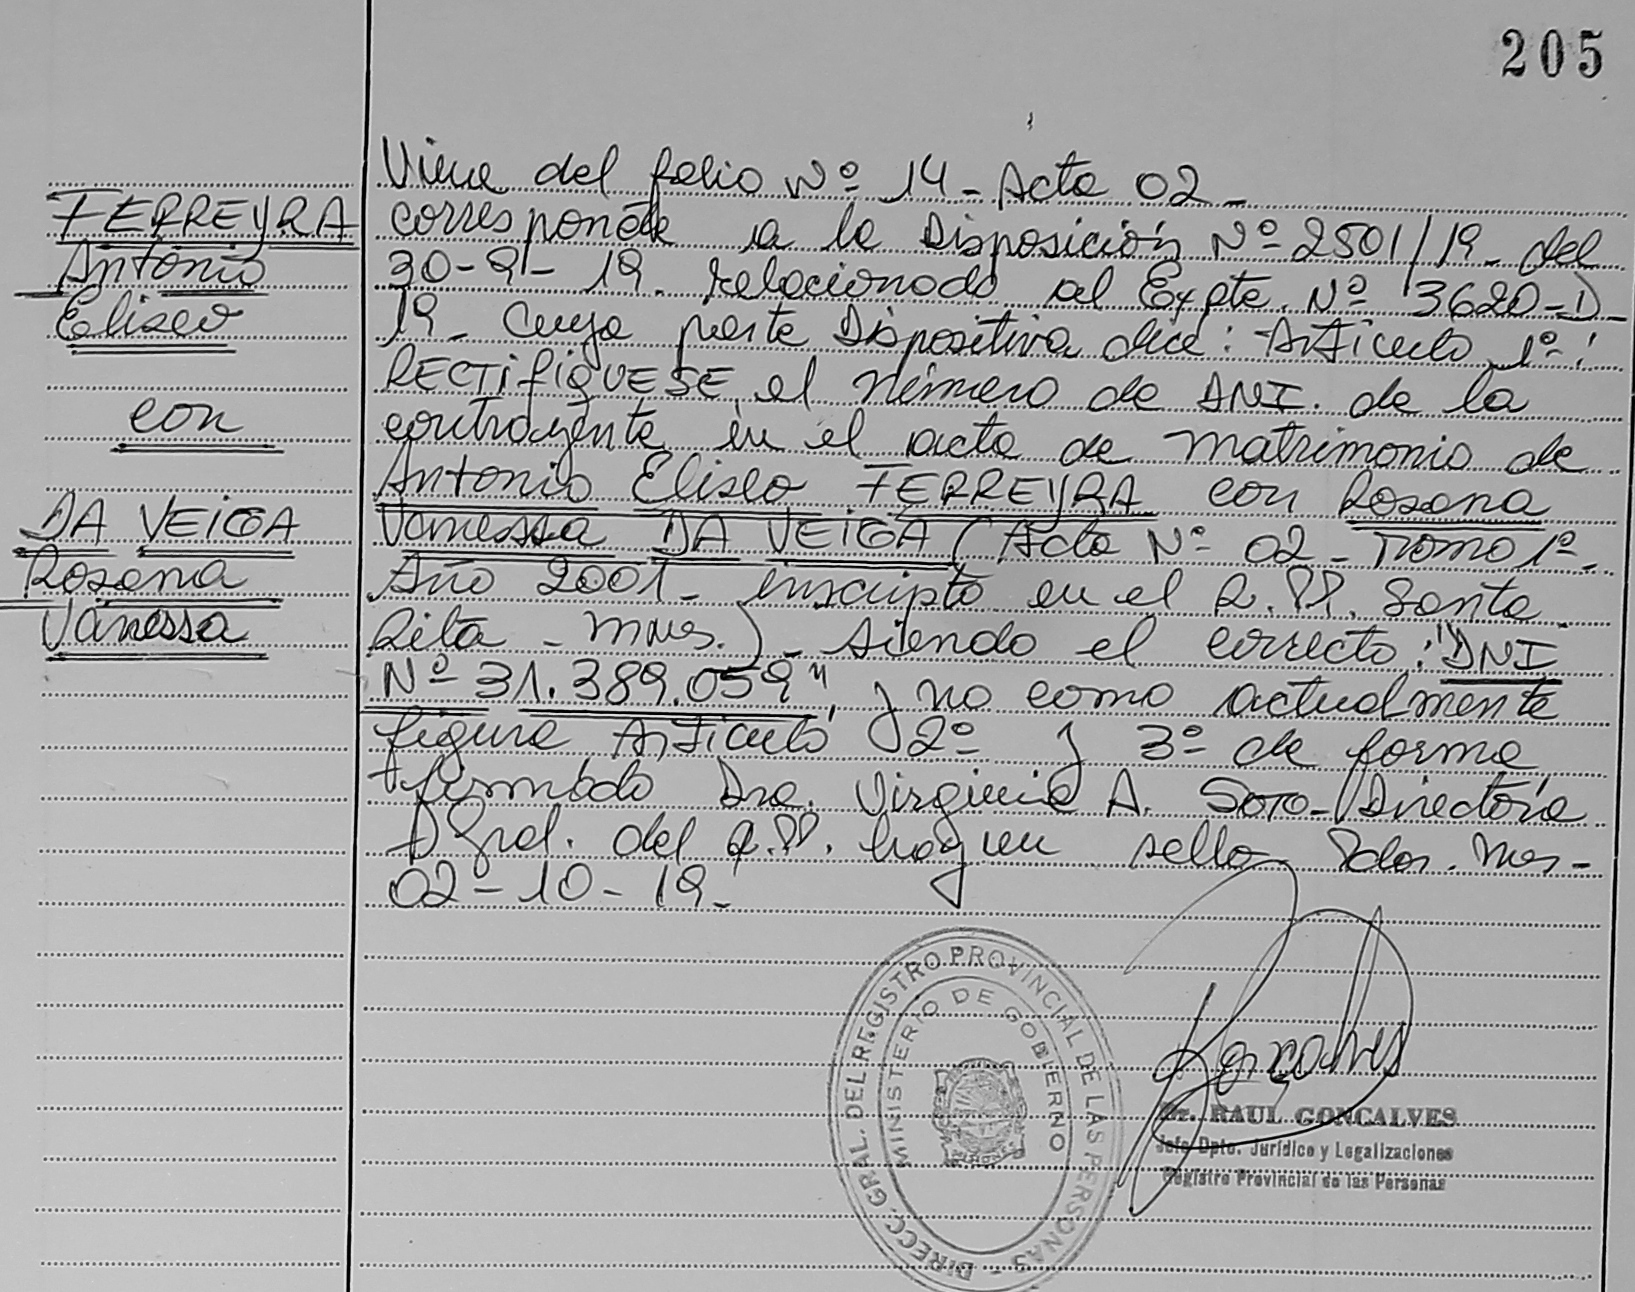 205
FERREYRA
Antonio
Eliseo
con
DA VEIGA
Rosana
Vanessa
Viene del folio Nº 14 - Acta 02 -
corresponde a la Disposición Nº 2501/19 - del
30-9-19. relacionado al Expte. Nº 3620-D-
19 - Cuya parte Dispositiva dice: Artículo 1º:
RECTIFIQUESE el número de DNI. de la
contrayente en el acta de matrimonio de
Antonio Eliseo FERREYRA con Rosana
Vanessa DA VEIGA (Acta Nº 02 - Tomo 1º -
Año 2001 - inscripta en el R.PP. Santa
Rita - Mnes.) - siendo el correcto: "DNI
Nº 31.389.059", y no como actualmente
figura Artículo 2º y 3º de forma
firmado Dra. Virginia A. Soto - Directora
Gral. del R.PP. hay un sello Pdas. Mnes-
02-10-19 -
DIRECC. GRAL. DEL REGISTRO PROVINCIAL DE LAS PERSONAS -
MINISTERIO DE GOBIERNO
MISIONES
Goncalves
Dr. RAUL GONCALVES
Jefe Dpto. Jurídico y Legalizaciones
Registro Provincial de las Personas